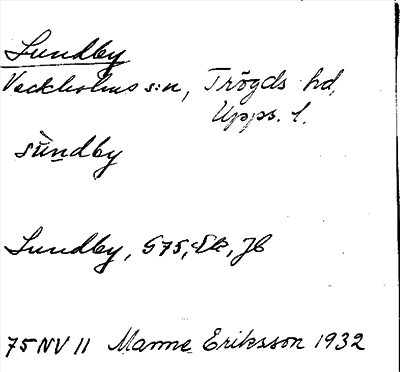 Sundby
Veckholms s:n, Trögds hd,
Upps. l.
sùndby
Sundby, G75, Ek, JB
75 NV 11 Manne Eriksson 1932